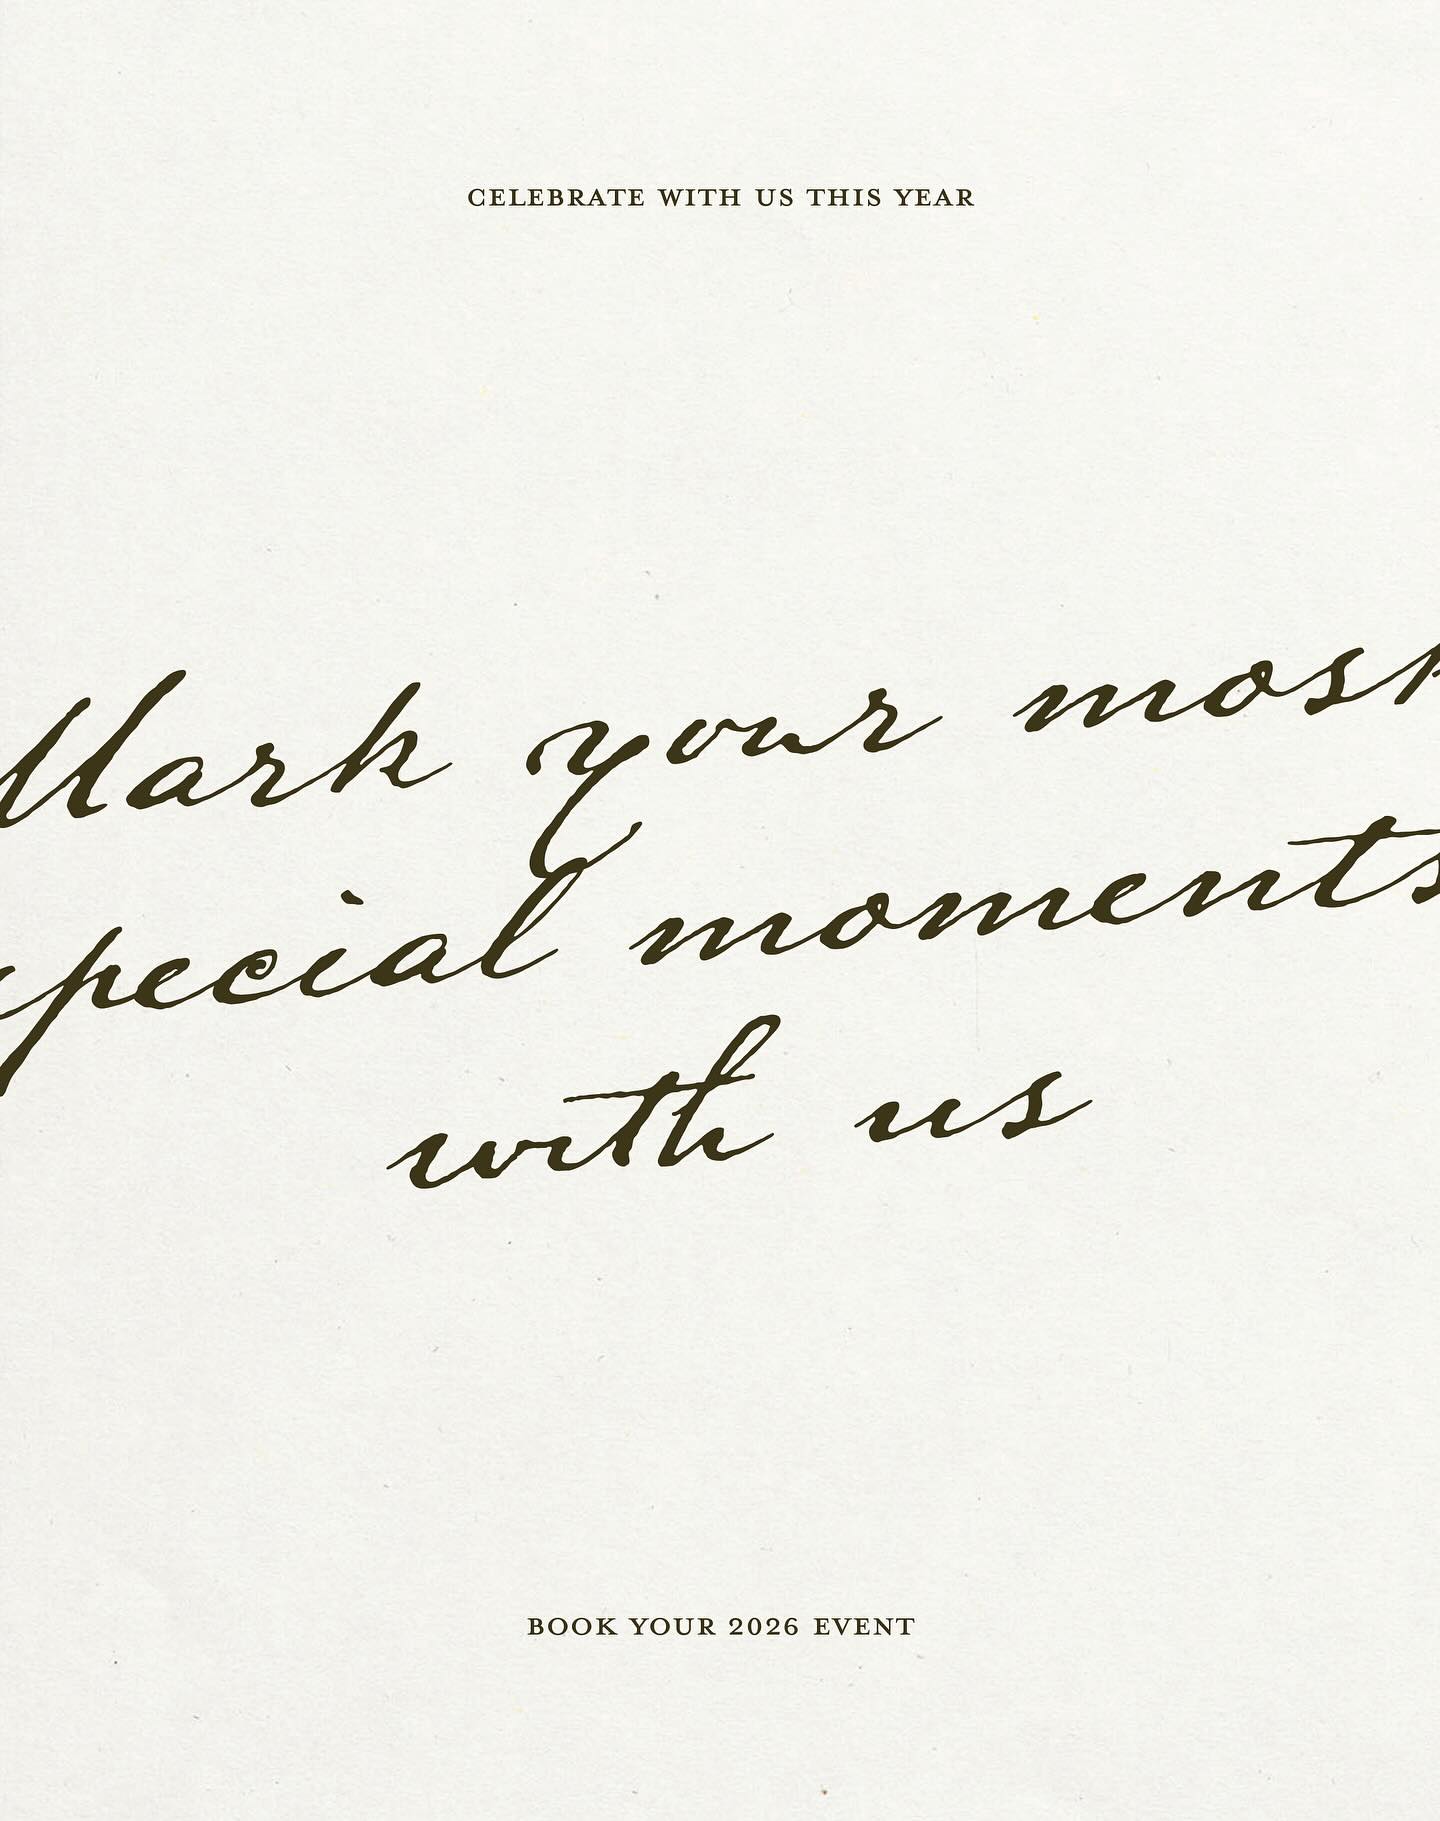 CELEBRATE WITH US THIS YEAR
Mark your most
special moments
with us
BOOK YOUR 2026 EVENT